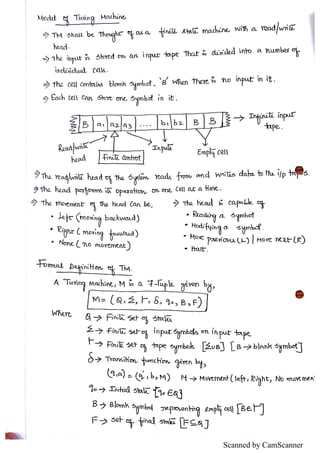 Model of Turing Machine
→ TM shall be thought of as a finite state machine with a read/write
head.
→ The input is stored on an input tape that is divided into a number of
individual cells.
→ The cell contains blank symbol, 'B' when there is no input in it.
→ Each cell can store one symbol in it.
B a₁ a2 a3 .... b₁ b2 B B → Infinite input
tape.
Read/write
head
Finite Control
Inputs
Empty cell
→ The read/write head of the system reads from and writes data to the i/p tapes.
→ The head performs its operation on one cell at a time.
→ The movement of the head can be,
• Left (moving backward)
• Right (moving forward)
• None (no movement)
→ The head is capable of
• Reading a symbol
• Modifying a symbol.
• Move previous (L) | Move next (R)
• Halt.
Formal Definition of TM.
A Turing Machine, M is a 7-tuple given by,
M = (Q, Σ, Γ, δ, q₀, B, F)
Where
Q → Finite set of states
Σ → Finite set of input symbols on input tape
Γ → Finite set of tape symbols [ΣUB] [B → blank symbol]
δ → Transition function given by,
(q,a) = (q', b, M) M → Movement (left, Right, No movement)
q₀ → Initial state [q₀ ∈ Q]
B → Blank symbol representing empty cell [B ∈ Γ]
F → Set of final states [F ⊆ Q]
Scanned by CamScanner